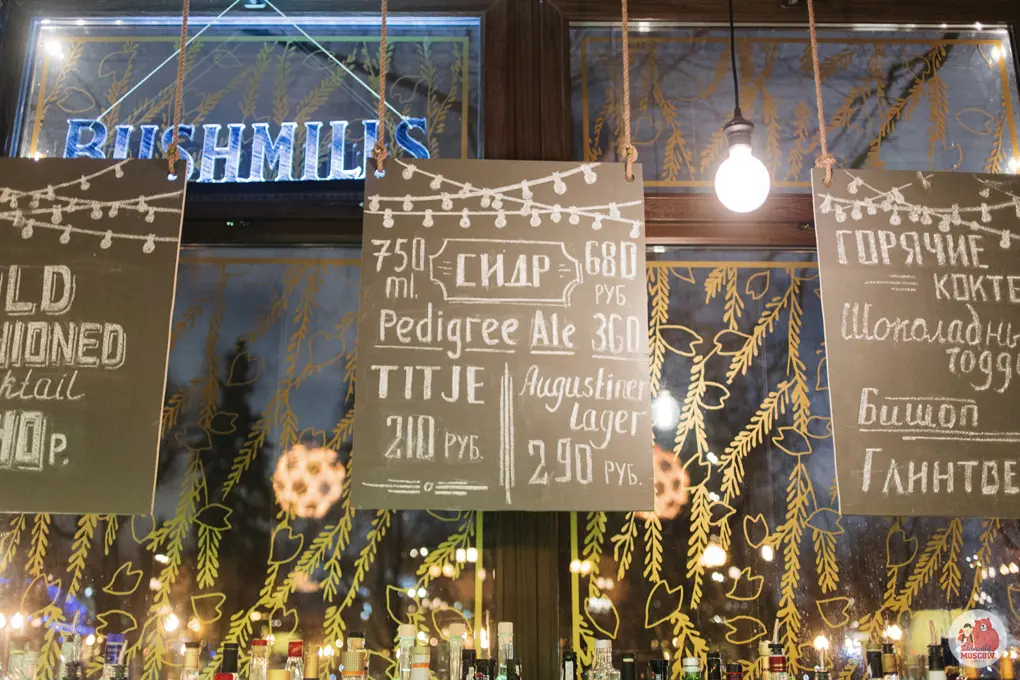 BUSHMILLS
OLD
SHIONED
cktail
р.
750 ml.
СИДР
680 РУБ.
Pedigree Ale 360
TITJE
210 РУБ.
Augustiner
Lager
290 РУБ.
ГОРЯЧИЕ
КОКТЕ
Шоколадны
тодд
Бишоп
Глинтве
MOSCOW